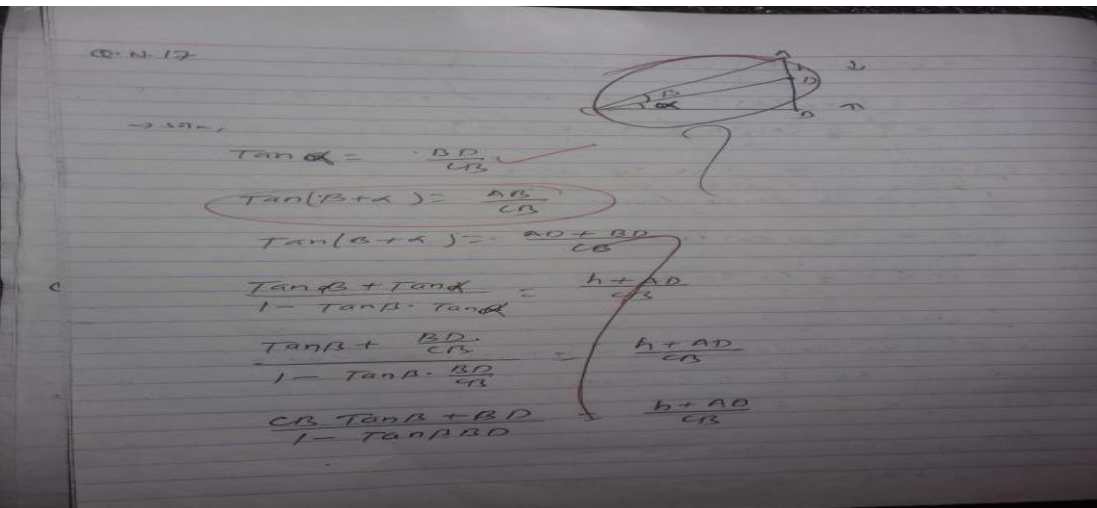 Q.N.17
→ soln,
Tan α = BD/CB
Tan(β+α) = AB/CB
Tan(β+α) = AD + BD/CB
Tanβ + Tanα/1 - Tanβ. Tanα = h + AD/CB
Tanβ + BD/CB/1 - Tanβ. BD/CB = h + AD/CB
CB Tanβ + BD/1 - Tanβ BD = h + AD/CB
C
β
α
D
?